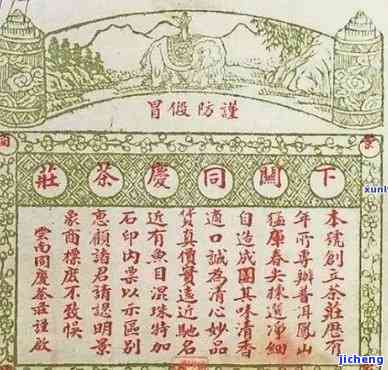 謹防假冒
下關同慶茶莊
本號創立茶莊歷有
年所專辦普洱鳳山
猛庫春尖揀選淨細
自造成團其味清香
適口誠為清心妙品
貨真價實遠近馳名
近有魚目混珠特加
石印內票以示區別
惠顧諸君請認明景
象商標庶不致悮
雲南同慶茶莊謹啟
xunl
jicheng